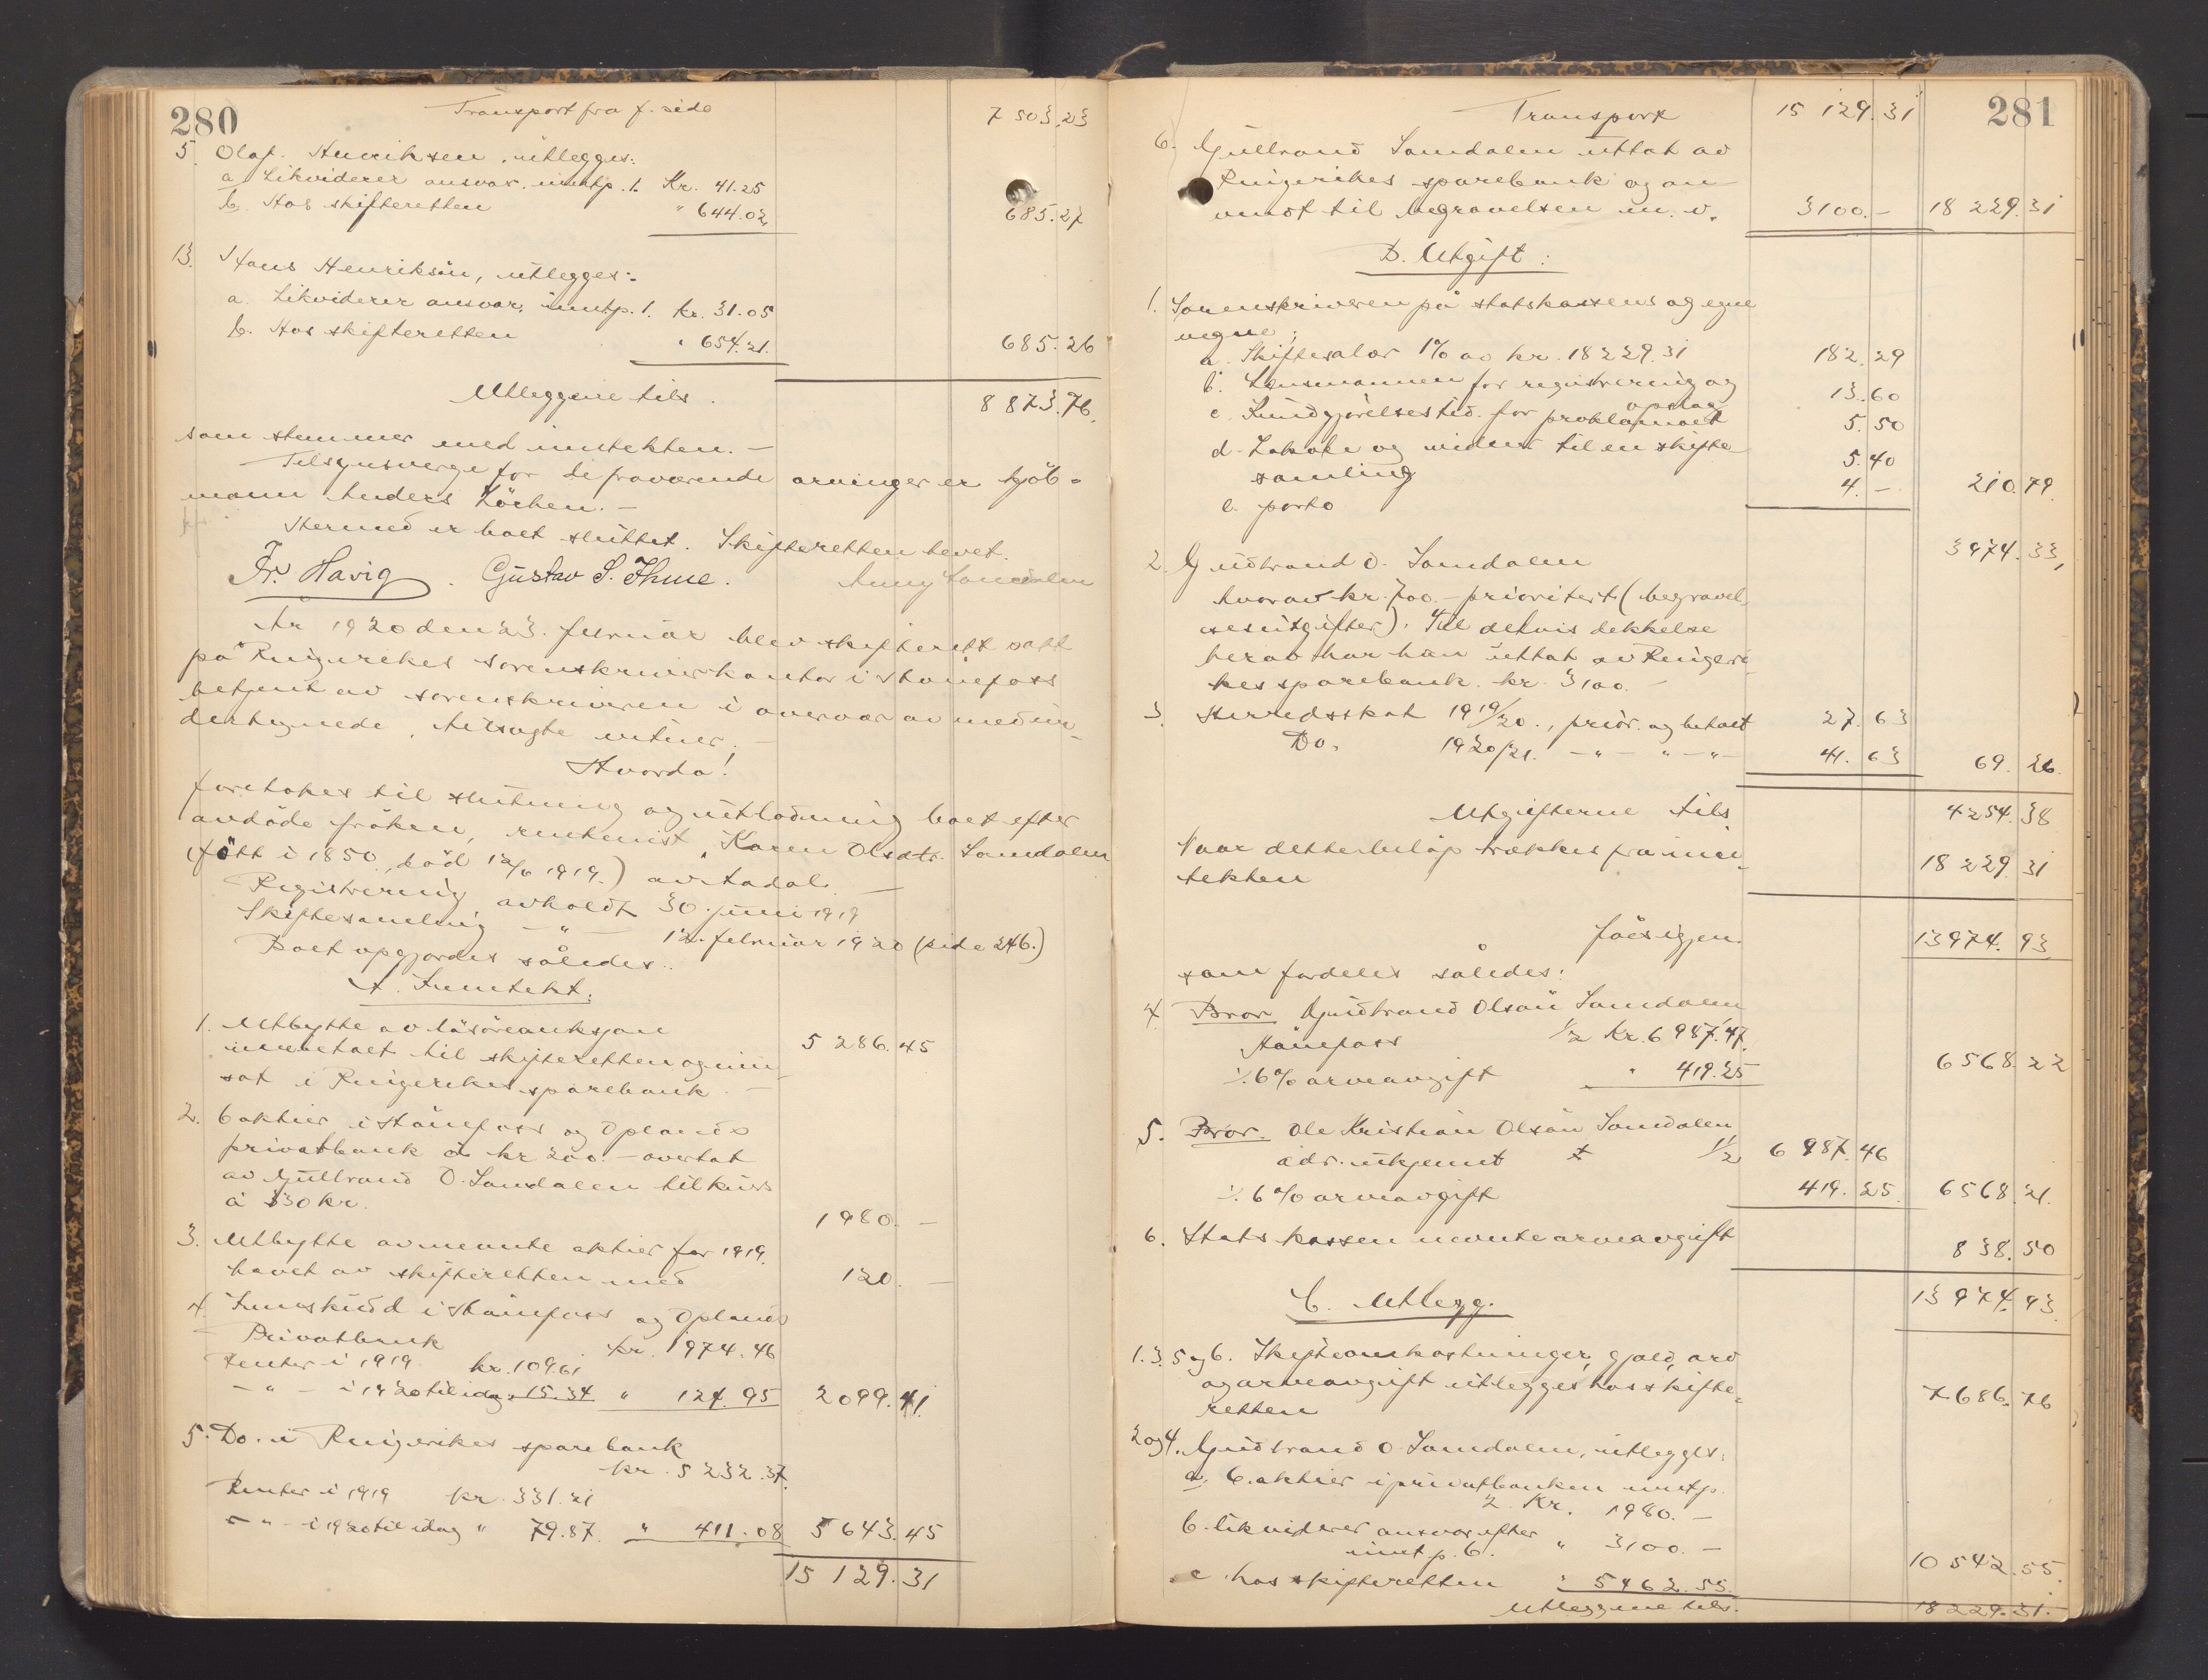 280
Transport fra f. side 7 503.23
5. Olaf Henriksen, utlegges:
a. Likviderer ansvar, inntp. 1. Kr. 41.25
b. Hos skifteretten " 644.02 685.27
13. Hans Henriksen, utlegges:
a. Likviderer ansvar, inntp. 1. kr. 31.05
b. Hos skifteretten " 654.21. 685.26
Utleggene tils. 8 873.76.
som stemmer med inntekten. —
Tilsynsverge for de fraværende arvinger er kjöb-
mann Anders Körhen. —
Hermed er boet sluttet. Skifteretten hevet.
Fr. Havig. Gustav S. Thune. Anny Samdalen
År 1920 den 23. februar blev skifterett satt
på Ringerikes sorenskriverkontor i Hönefoss
betjent av sorenskriveren i overvær av medun-
dertegnede, tilsagte vitner. —
Hvorda!
foretokes til slutning og utlodning boet efter
avdöde fröken, rentenist Karen Olsdtr. Samdalen
(född i 1850, död 12/6 1919.) av Aadal. —
Registrering avholdt 30. juni 1919
Skiftesamling — " — 12. februar 1920 (side 246.)
Boet opgjordes således:
A. Inntekt.
1. Utbytte av lösöreauksjon
innbetalt til skifteretten og inn-
sat i Ringerikes sparebank. — 5 286.45
2. 6 aktier i Hönefoss og Oplands
privatbank à kr 200.— overtat
av Gulbrand O. Samdalen til kurs
à 330 kr. 1980. —
3. Utbytte av nevnte aktier for 1919.
hevet av skifteretten med 120. —
4. Innskudd i Hönefoss og Oplands
Privatbank kr. 1974.46
Renter i 1919 kr. 109.61
— " — i 1920 til idag " 15.34 " 124.95 2099.41.
5. Do. i Ringerikes sparebank
kr. 5 232.37.
Renter i 1919 kr. 331.21
— " — i 1920 til idag " 79.87. " 411.08 5 643.45
15 129.31
281
Transport 15 129.31
6. Gulbrand Samdalen uttat av
Ringerikes sparebank og an-
vendt til begravelsen m. v. 3100.— 18 229.31
B. Utgift:
1. Sorenskriveren på statskassens og egne
vegne:
a. Skiftesalær 1% av kr. 18 229.31 182.29
b. Lensmannen for registrering og
opslag 13.60
c. Kundgjörelsestid. for proklamaet 5.50
d. Lokale og vidner til en skifte-
samling 5.40
e. porto 4.— 210.79.
2. Gudbrand O. Samdalen 3974.33,
hvorav kr. 700.— prioritert (begravel-
sesutgifter). Til delvis dekkelse
herav har han uttat av Ringeri-
kes sparebank kr. 3100.—
3. Herredsskat 1919/20., prior. og betalt 27.63
Do. 1920/21. — " — " — " — 41.63 69.26.
Utgifterne tils. 4254.38
Naar dette belöp trækkes fra inn-
tekten 18 229.31
fåes igjen 13974.93
som fordeles således:
4. Bror Gudbrand Olsen Samdalen
Hönefoss 1/2 Kr. 6 987.47.
÷ 6% arveavgift " 419.25 6568.22
5. Bror. Ole Kristian Olsen Samdalen
adr. ukjennt 1/2 6 987.46
÷ 6% arveavgift 419.25. 6568.21.
6. Statskassen nevnte arveavgift 838.50
13 974.93.
C. Utlegg.
1. 3. 5 og 6. Skifteomkostninger, gjeld, arv
og arveavgift utlegges hos skifte-
retten 7 686.76
2 og 4. Gudbrand O. Samdalen, utlegges:
a. 6 aktier i privatbanken inntp.
2 Kr. 1980.—
b. likviderer ansvar efter
inntp. 6. " 3100.—
c. hos skifteretten " 5462.55. 10 542.55.
Utleggene tils. 18 229.31.